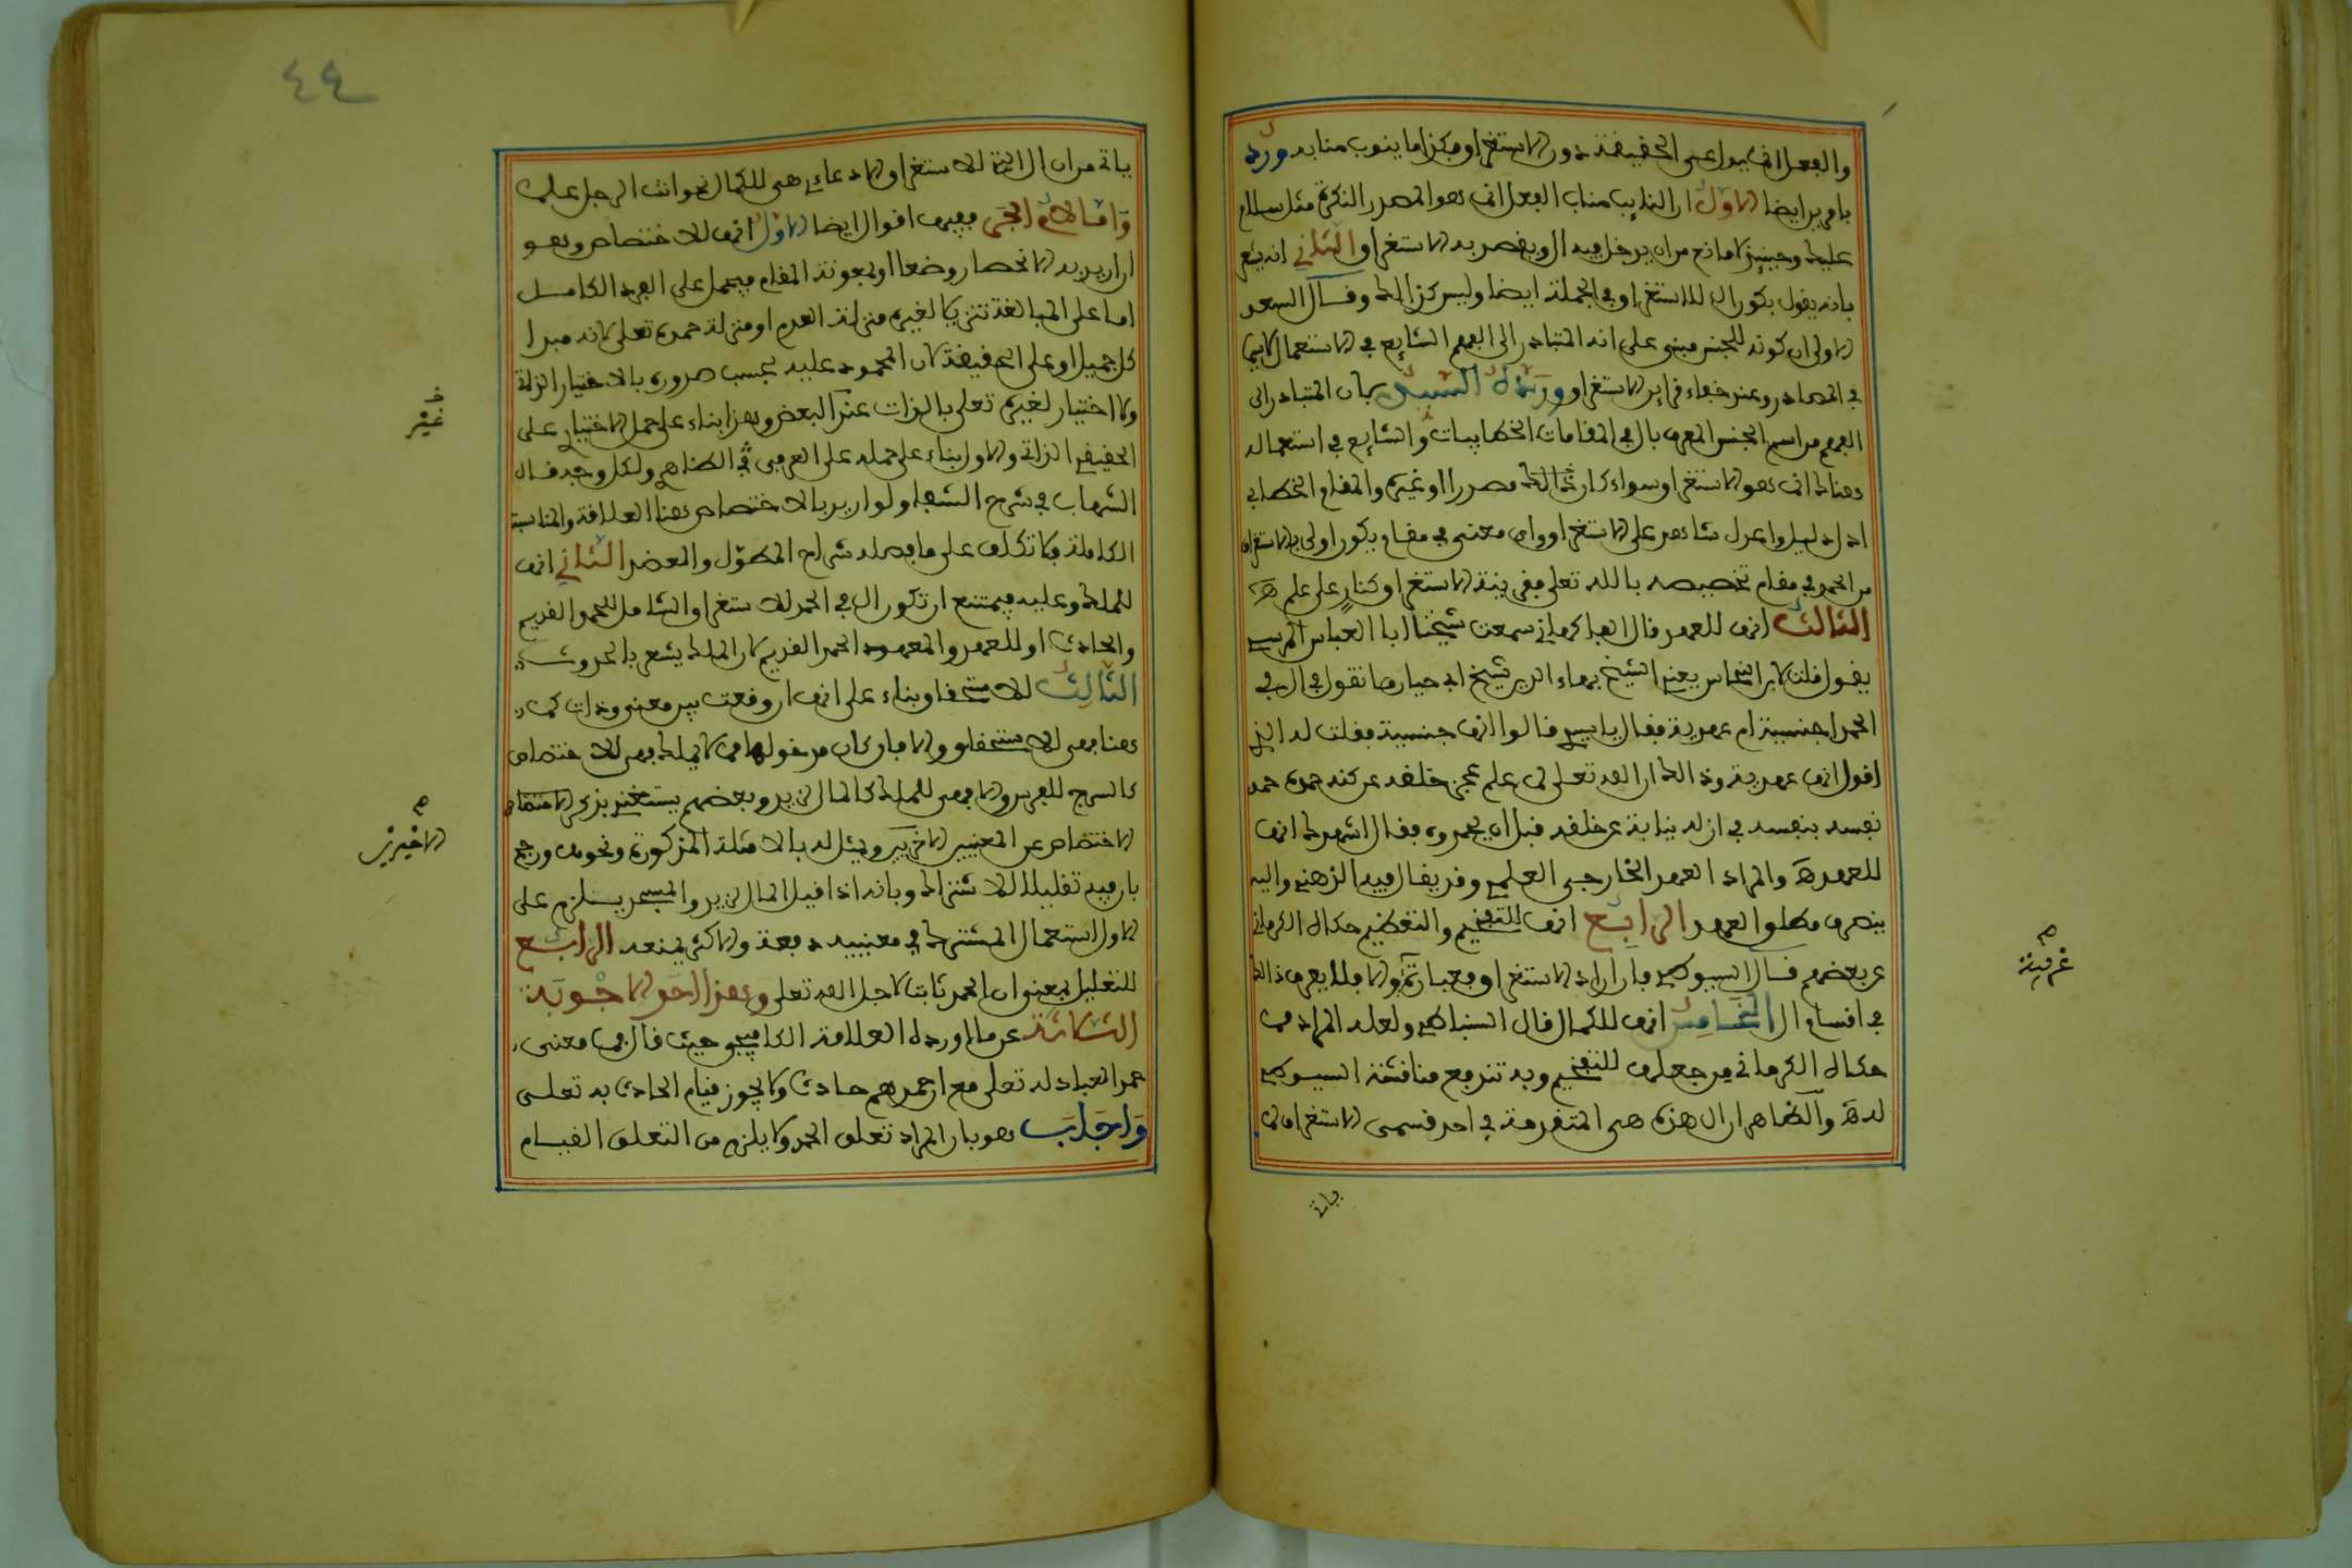 والفعل انما يدل على الحقيقة دون الاستغراق فكذا ما ينوب منابه ورد
بامرين ايضا الاول ان النايب مناب الفعل انما هو المصدر النكرة مثل سلام
عليك وحينئذ لا مانع من ان يدخل فيه ال ويقصد به الاستغراق الثاني انه يشعر
بانه يقول بكون ال للاستغراق في الجملة ايضا وليس كذلك وقال السعد
الاولى ان كونه للجنس مبني على انه المتبادر الى الفهم الشايع في الاستعمال لا سيما
في المصادر وعند خفاء قراين الاستغراق ورده السيد بان المتبادر الى
الفهم من اسم الجنس المعرف بال في المقامات الخطابيات والشايع في استعماله
هناك انما هو الاستغراق سواء كان ذالك مصدرا او غيره والمقام الخطابي
ادل دليل واعدل شاهد على الاستغراق واي معنى في مقام يكون اولى بالاستغراق
من الحمد في مقام تخصيصه بالله تعلى فقرينة الاستغراق كنار على علم هـ
الثالث انها للعهد قال الفاكهاني سمعت شيخنا ابا العباس المرسي
يقول قلت لابن النحاس يعني الشيخ بهاء الدين شيخ ابي حيان ما تقول في ال في
الحمد اجنسية ام عهدية فقال يا سيدي قالوا انها جنسية فقلت له الذي
اقول انها عهدية وذالك ان الله تعلى لما علم عجز خلقه عن كنه حمده حمد
نفسه بنفسه في ازله نيابة عن خلقه قبل ان يحمدوه فقال اشهدك انها
للعهد هـ والمراد العهد الخارجي العلمي وقد يقال فيه الذهني واليه
ينصرف مطلق العهد الرابع انها للتفخيم والتعظيم حكاه الكرماني
عن بعضهم قال السيوطي فان اراد الاستغراق فعبارته والا فلا يعرف ذالك
في اقسام ال الخامس انها للكمال قال السنباطي ولعله المراد مما
حكاه الكرماني من جعلها للتفخيم وبه تندفع مناقشة السيوطي
له هـ والظاهر ان ال هذه هي المتقدمة في احد قسمي الاستغراق لما
ياتي
٤٤
ياتي من ان ال الآتية للاستغراق الادعائي هي للكمال نحو انت الرجل علما
واما لام الجر ففيها اقوال ايضا الاول انها للاختصاص وهو
ان اريد به الانحصار وضعا او بمعونة المقام فيحمل على الفرد الكامل
اما على المبالغة تنزيلا لغيره منزلة العدم او منزلة حمده تعلى لانه مبدا
كل جميل او على الحقيقة لان المحمود عليه يجب صدوره بالاختيار الذاتي
ولا اختيار لغيره تعلى بالذات عند البعض وهذا بناء على حمل الاختيار على
غير
الحقيقي الذاتي والاول بناء على حمله على العرفي في الظاهر ولكل وجه قاله
الشهاب في شرح الشفا ولو اريد بالاختصاص هنا العلاقة والمناسبة
الكاملة فلا تكلف على ما فصله شراح المطول والعضد الثاني انها
للملك وعليه فيمتنع ان تكون ال في الحمد للاستغراق الشامل للحمد القديم
والحادث او للعهد والمعهود الحمد القديم لان الملك يشعر بالحدوث
الثالث للاستحقاق بناء على انها ان وقعت بين معنى وذات كما
هنا فهي للاستحقاق والا فان كان مدخولها مما لا يملك فهي للاختصاص
كالسرج للفرس والا فهي للملك كالمال لزيد وبعضهم يستغني بذكر الاختصاص
الاخيرين
الاختصاص عن المعنيين الاخرين ويمثل له بالامثلة المذكورة ونحوها ورجح
بان فيه تقليلا للاشتراك وبانه اذا قيل المال لزيد والمسجد يلزم على
الاول استعمال المشترك في معنييه دفعة والاكثر يمنعه الرابع
للتعليل بمعنى ان الحمد ثابت لاجل الله تعلى وهذا احق الاجوبة
الثلاثة عن ما اورده العلامة الكافيجي حيث قال فما معنى
حمد العباد له تعلى مع ان حمدهم حادث ولا يجوز قيام الحادث به تعلى
واجاب هو بان المراد تعلق الحمد ولا يلزم من التعلق القيام